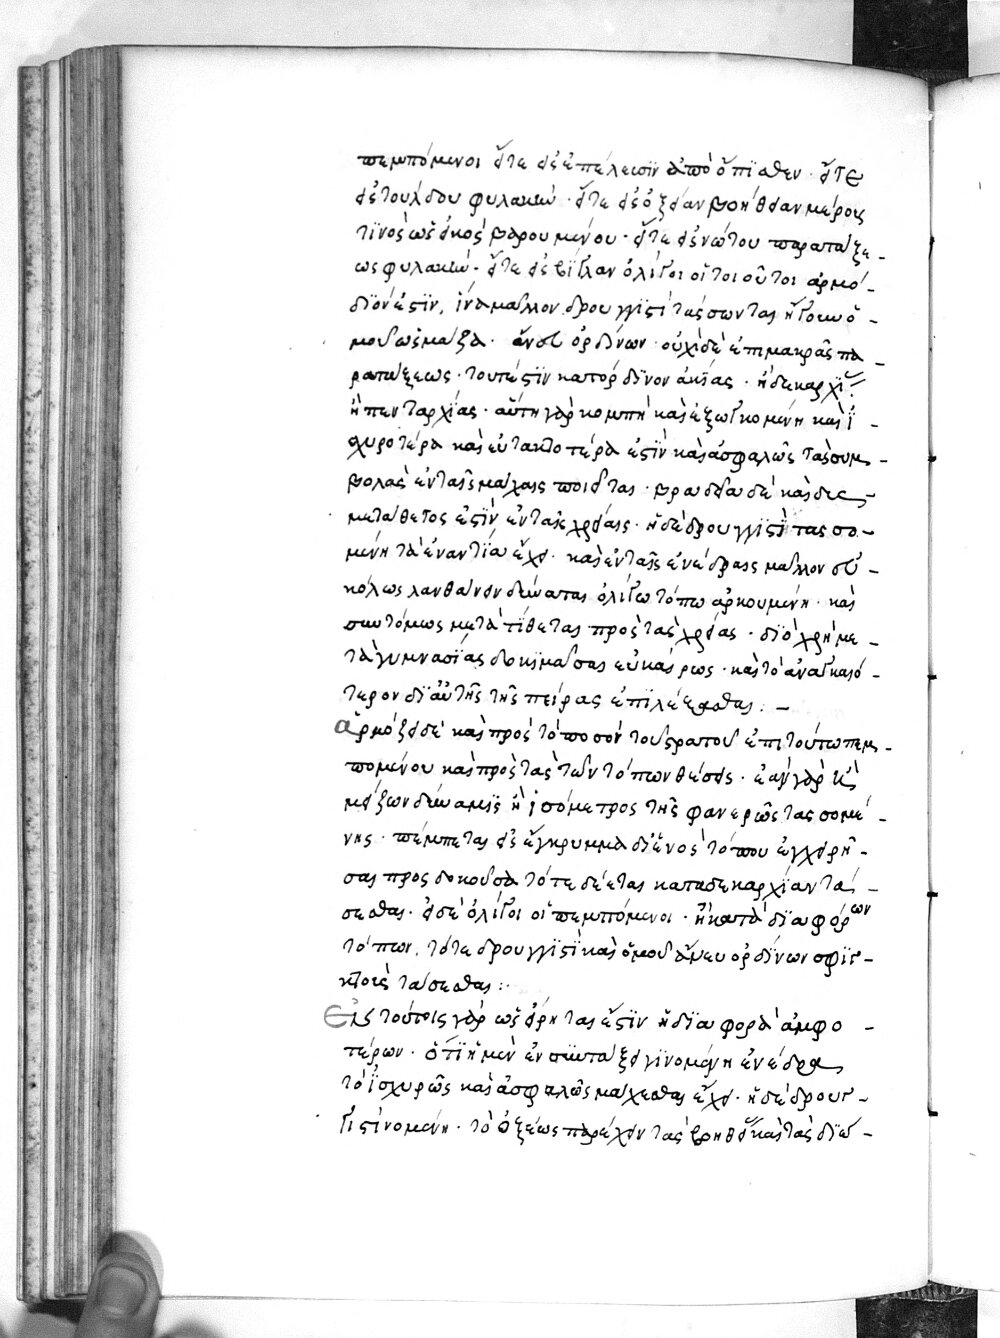 πεμπόμενοι εἴτε εἰς ἐπέλευσϊν ἀπὸ ὄπϊσθεν· εἴτε
εἰς τούλδου φυλακὴν· εἴτε εἰς ὀξεῖαν βοήθειαν μέρους
τϊνὸς ὡς εἰκὸς βαρουμένου· εἴτε εἰς νώτου παρατάξε-
ως φυλακὴν· εἴτε εἰς βίγλαν ὀλίγοι οἱ τοιοῦτοι ἁρμό-
διόν ἐστϊν, ἵνα μᾶλλον δρουγγϊστὶ τάσσωνται ἤγουν ὁ-
μοῦ ὡς μάζα· ἄνευ ὀρδίνων· οὐχὶ δὲ ἐπὶ μακρᾶς πα-
ρατάξεως· τουτέστϊν κατ' όρδϊνον ἀκίας· ἢ δεκαρχΐας
ἢ πενταρχίας· αὕτη γὰρ κομπὴ καὶ ἐξωγκομένη καὶ ἰ-
σχυροτέρα καὶ εὐτακτοτέρα ἐστϊν καὶ ἀσφαλῶς τὰς συμ-
βολὰς ἐν ταῖς μάχαις ποιεῖται· βραδεῖα δὲ καὶ δυσ-
μετάθετος ἐστϊν ἐν ταῖς χρείαις· ἡ δὲ δρουγγϊστὶ τασσο-
μένη τὰ ἐναντία ἔχει· καὶ ἐν ταῖς ἐνέδραις μᾶλλον εὐ-
κόλως λανθάνειν δύναται ὀλίγω τόπω ἀρκουμένη· καὶ
συντόμως μετατίθεται πρὸς τὰς χρείας· διὸ χρὴ με-
τὰ γυμνασίας δοκϊμάσαι εὐκαίρως· καὶ τὸ ἀναγκαιό-
τερον δι' αὐτῆς τῆς πείρας ἐπϊλέξασθαι: –
ἁρμόξει δὲ καὶ πρὸς τὸ ποσὸν τοῦ στρατοῦ ἐπὶ τούτω πεμ-
πομένου καὶ πρὸς τὰς τῶν τόπων θέσεις· ἐὰν γὰρ ἢ
μείζων δύναμϊς ἢ ἰσόμετρος τῆς φανερῶς τασσομέ-
νης· πέμπεται εἰς ἔγκρυμμα δι' ἑνὸς τόπου ἐγχειρῆ-
σαι προσδοκοῦσα τότε δέεται κατὰ δεκαρχΐαν τάσ-
σεσθαι· εἰ δὲ ὀλίγοι οἱ πεμπόμενοι· ἢ κατὰ διαφόρων
τόπων, τότε δρουγγϊστὶ καὶ ὁμοῦ ἄνευ ὀρδίνων σφϊγ-
κτοὺς τάσσεσθαι:
Ἐν τούτοις γὰρ ὡς εἴρηται ἐστϊν ἡ διαφορὰ ἀμφο-
τέρων· ὅτϊ ἡ μὲν ἐν συντάξει γϊνομένη ἐνέδρα
τὸ ἰσχυρῶς καὶ ἀσφαλῶς μάχεσθαι ἔχει· ἡ δὲ δρουγ-
γιστὶ γινομένη· τὸ ὀξέως παρέχειν τὰς βοηθείας καὶ τὰς διώ-